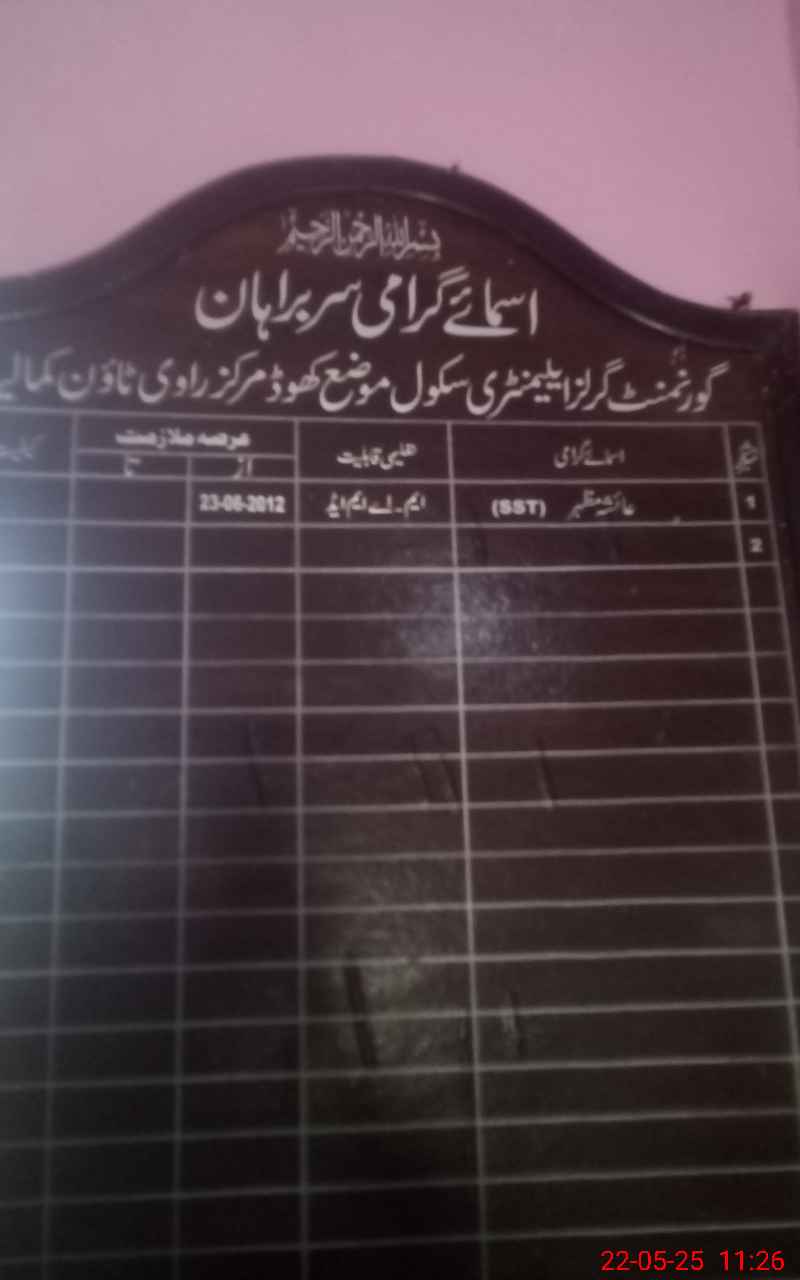 بسم اللہ الرحمن الرحیم
اسمائے گرامی سربراہان
گورنمنٹ گرلز ایلیمنٹری سکول موضع کھوڈ مرکز راوی ٹاؤن کمالیہ
اسمائے گرامی تعلیمی قابلیت عرصہ ملازمت
از تا
1 عائشہ مظہر (SST) ایم۔اے ایم ایڈ 23-06-2012
2
22-05-25 11:26